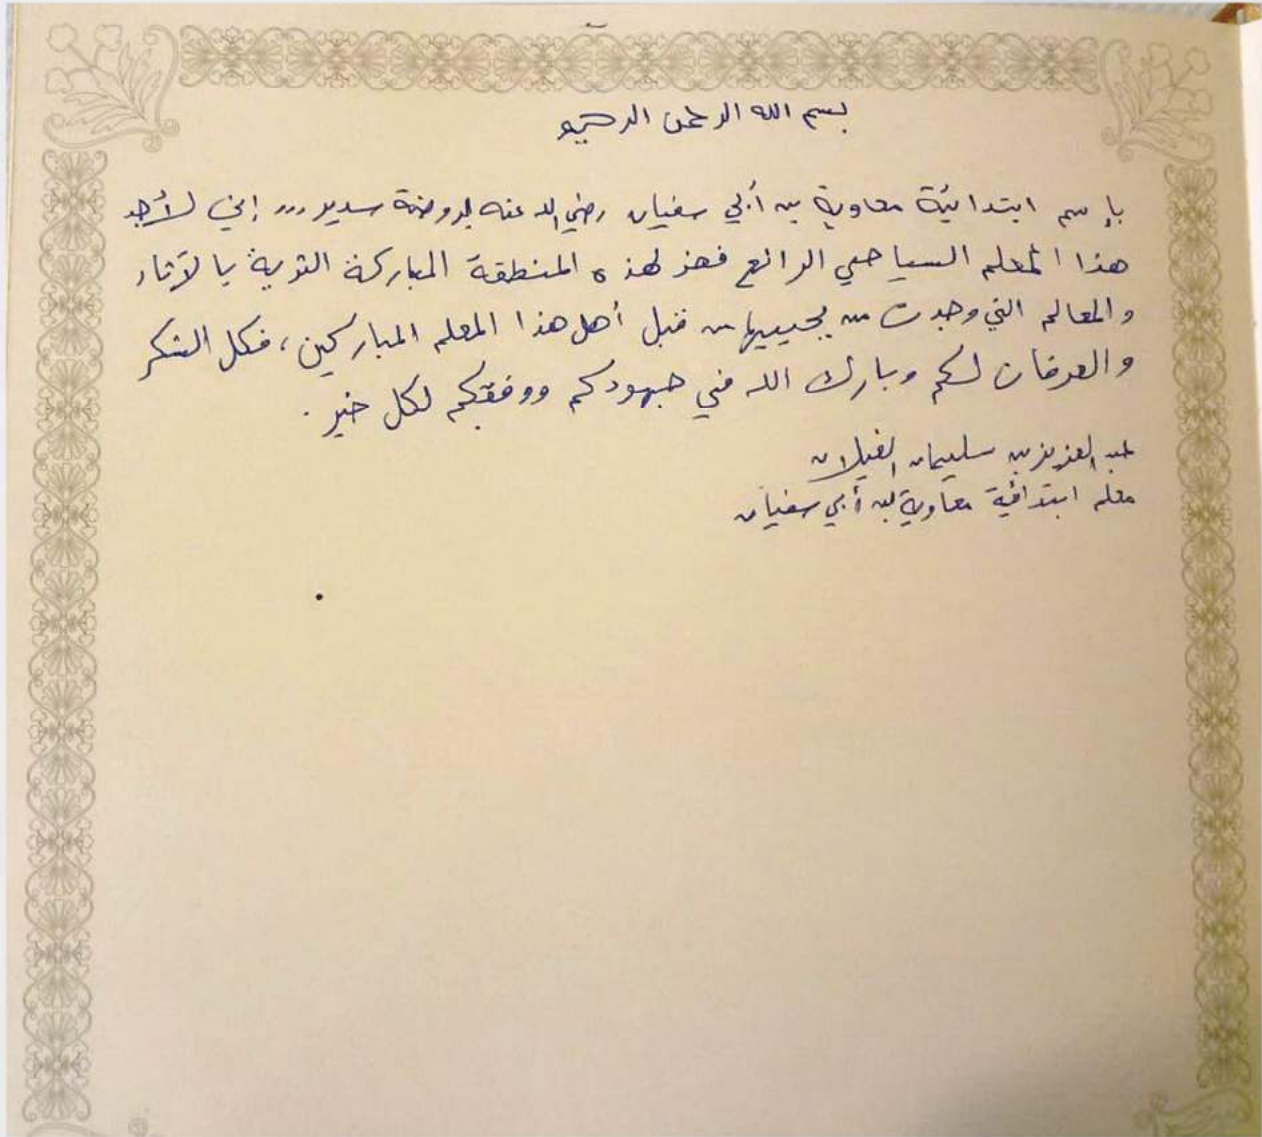 بسم الله الرحمن الرحيم
بإسم ابتدائية معاوية بن أبي سفيان رضي الله عنه بروضة سدير ... إني لأجد
هذا المعلم السياحي الرائع فخر لهذه المنطقة المباركة الثرية بالآثار
والمعالم التي وجدت من يحييها من قبل أهل هذا المعلم المباركين، فكل الشكر
والعرفان لكم وبارك الله في جهودكم ووفقكم لكل خير.
عبد العزيز بن سليمان الفيلان
معلم ابتدائية معاوية بن أبي سفيان